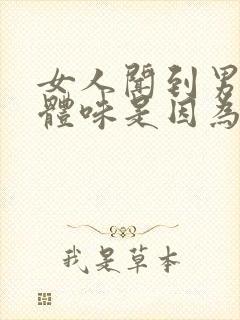 女人聞到男
體味是因為
我是草本